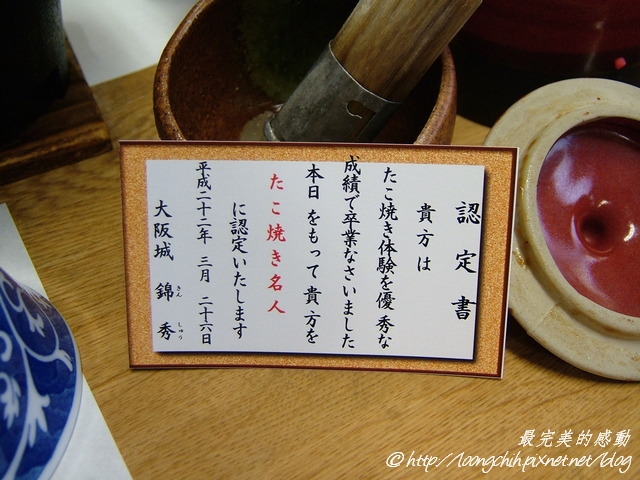 認定書
貴方は
たこ焼き体験を優秀な
成績で卒業なさいました
本日をもって貴方を
たこ焼き名人
に認定いたします
平成二十二年 三月 二十六日
大阪城 錦秀
きん
しゅう
最完美的感動
©http://loongchih.pixnet.net/blog